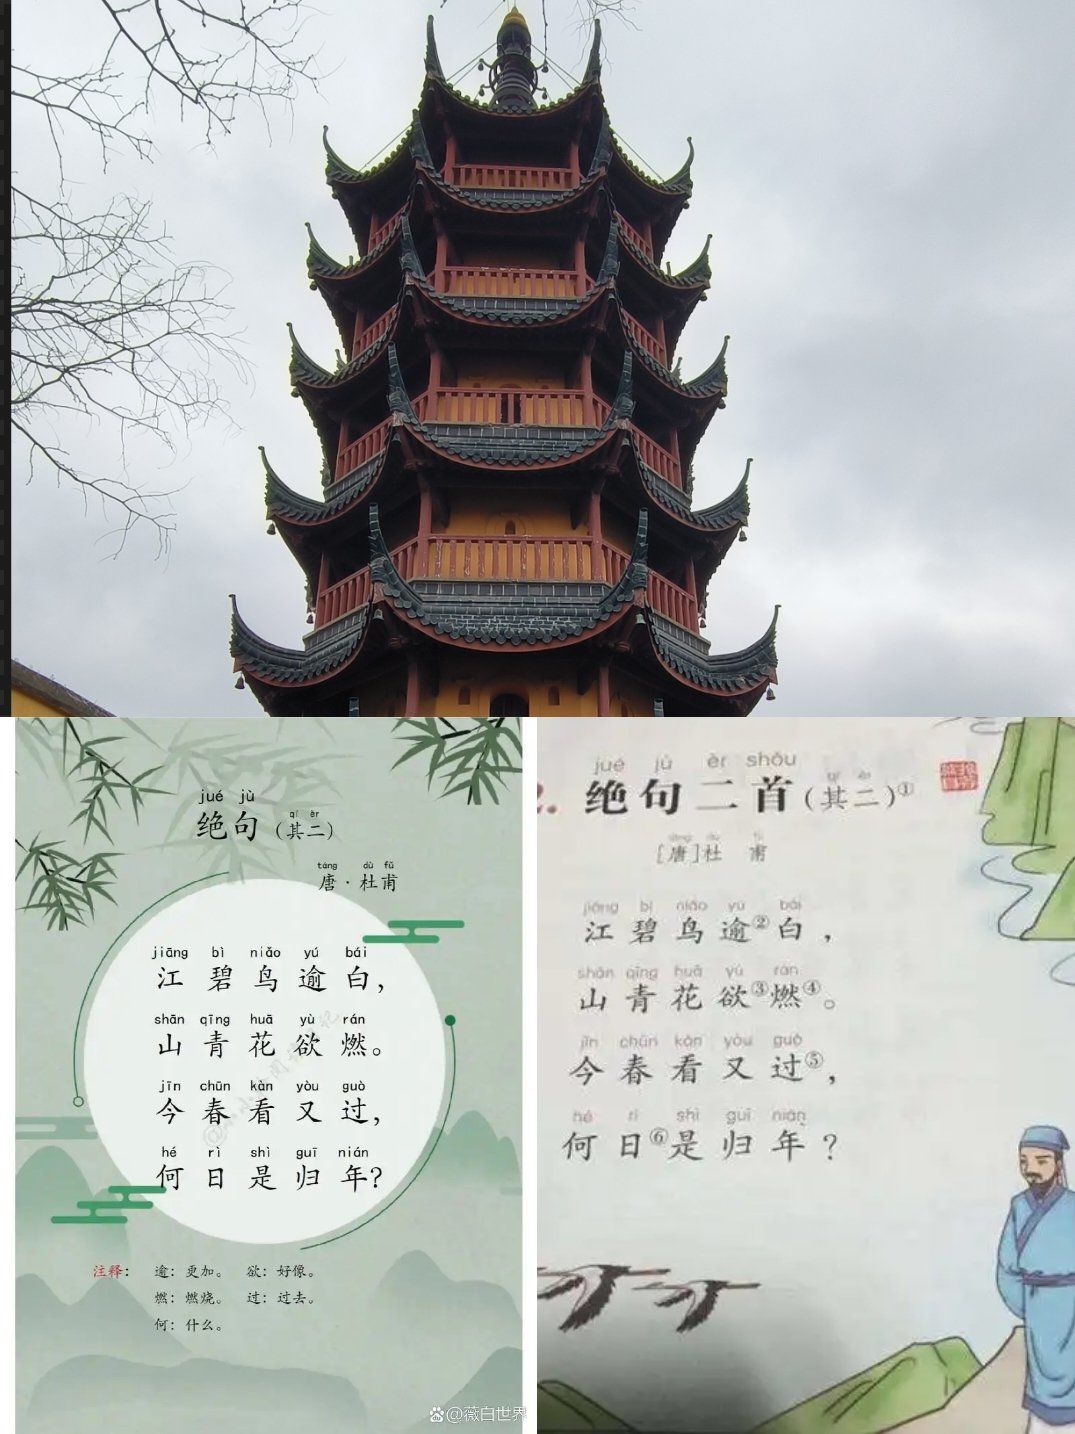 jué jù
绝句（其二）
qí èr
táng dù fǔ
唐·杜甫
jiāng bì niǎo yú bái
江碧鸟逾白，
shān qīng huā yù rán
山青花欲燃。
jīn chūn kàn yòu guò
今春看又过，
hé rì shì guī nián
何日是归年？
注释： 逾：更加。 欲：好像。
燃：燃烧。 过：过去。
何：什么。
@薇白世界
jué jù èr shǒu
绝句二首（其二）①
[唐]杜 甫
jiāng bì niǎo yú bái
江碧鸟逾②白，
shān qīng huā yù rán
山青花欲③燃④。
jīn chūn kàn yòu guò
今春看又过⑤，
hé rì shì guī nián
何日⑥是归年？